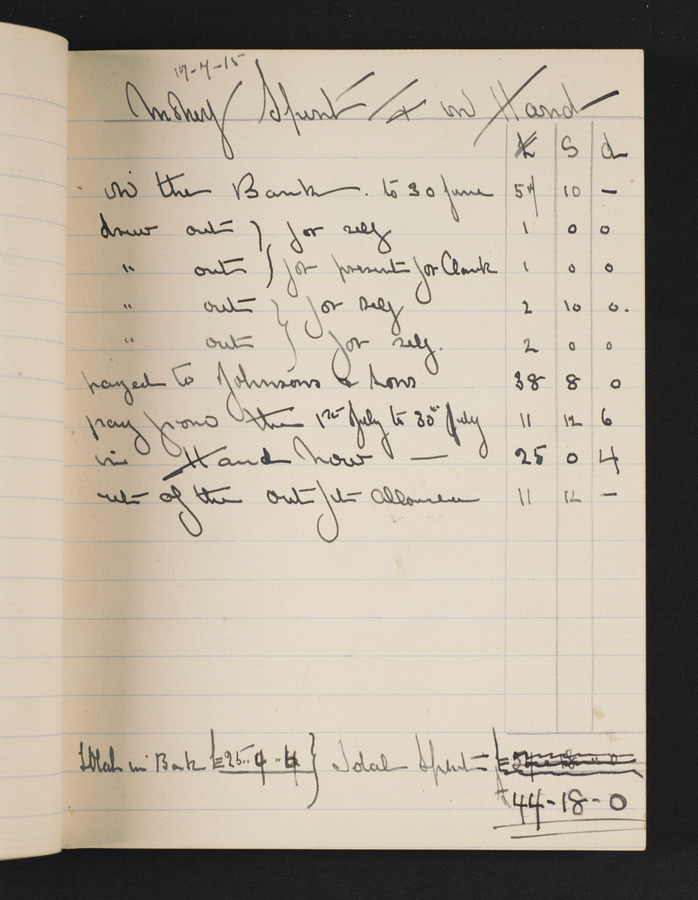 17-7-15
Money Spent & in Hand
£ S d
in the Bank. to 30 June 57 10 -
drew out } for self 1 0 0
" out } for present for Clark 1 0 0
" out } for self 2 10 0.
" out } for self. 2 0 0
payed to Johnsons & Sons 38 8 0
pay from the 1st July to 30th July 11 12 6
in Hand now — 25 0 4
of the outfit allowance 11 12 -
Total in Bank £=25..4..4 } Total Spent =
£44-18-0